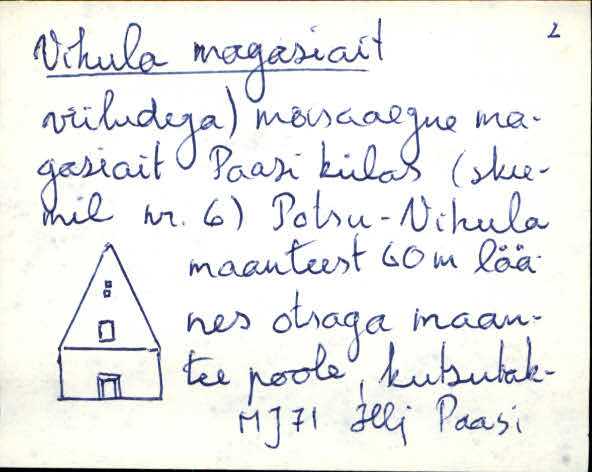 2
Vihula magasiait
viiludega) mõisaaegne ma-
gasiait Paasi külas (skee-
mil nr. 6) Potsu-Vihula
maanteest 60 m lää-
nes otsaga maan-
tee poole, kutsutak-
MJ71 Illj Paasi